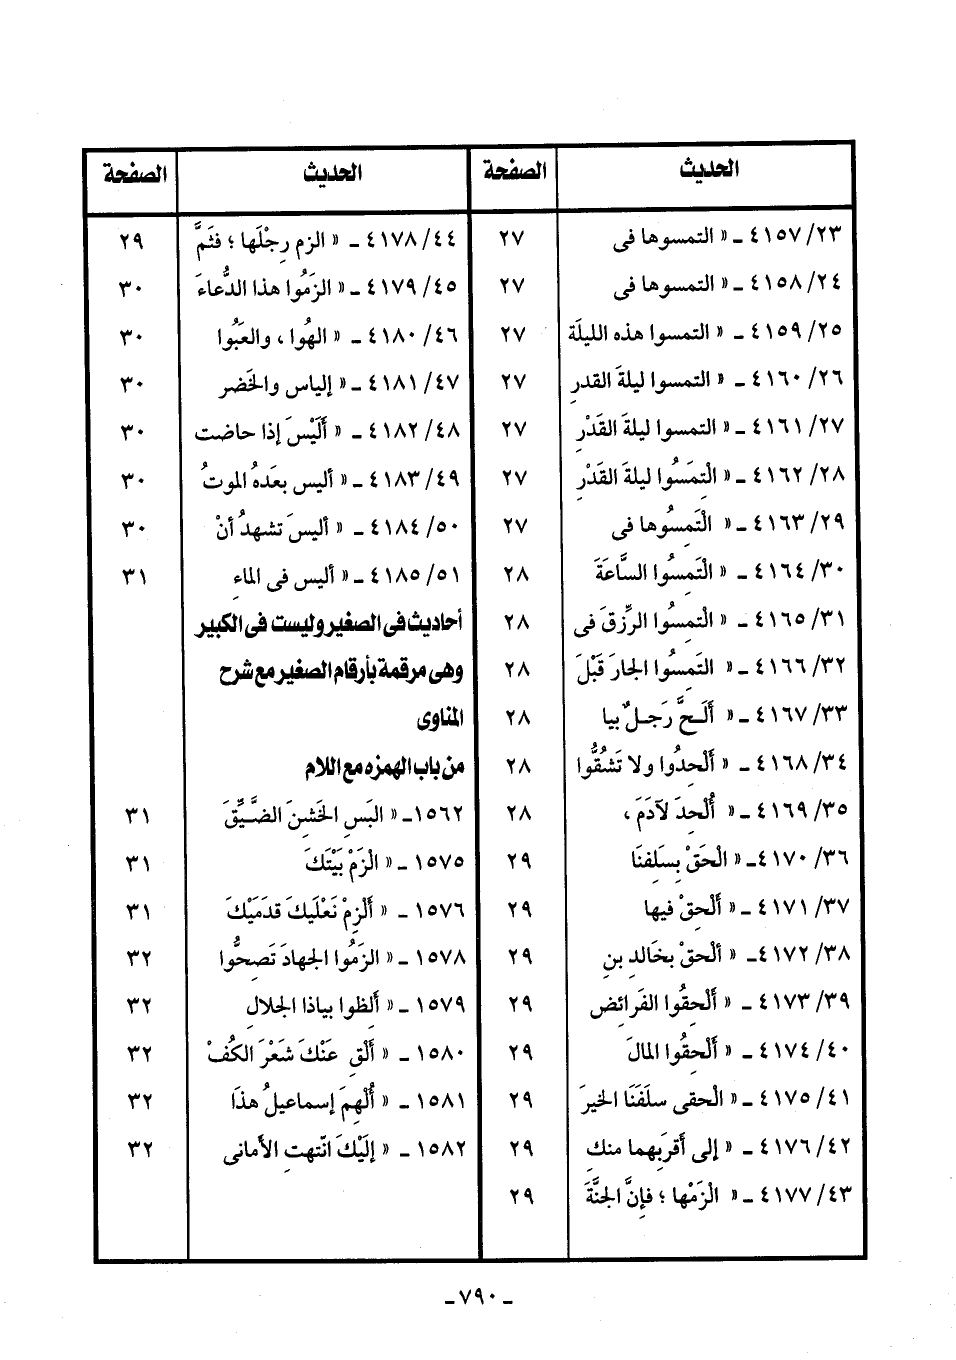 الحديث الصفحة
٤١٥٧/٢٣ ـ « التمسوها فى ٢٧
٤١٥٨/٢٤ ـ « التمسوها فى ٢٧
٤١٥٩/٢٥ ـ « التمسوا هذه الليلَة ٢٧
٤١٦٠/٢٦ ـ « التمسوا ليلةَ القدرِ ٢٧
٤١٦١/٢٧ ـ « التمسوا ليلةَ القَدْرِ ٢٧
٤١٦٢/٢٨ ـ « الْتِمَسُوا ليلةَ القَدْرِ ٢٧
٤١٦٣/٢٩ ـ « الْتَمِسُوها فى ٢٧
٤١٦٤/٣٠ ـ « الْتَمِسُوا السَّاعَةَ ٢٨
٤١٦٥/٣١ ـ « الْتمِسُوا الرِّزقَ فى ٢٨
٤١٦٦/٣٢ ـ « التَمِسُوا الجارَ قَبْلَ ٢٨
٤١٦٧/٣٣ ـ « أَلَـحَّ رَجـلٌ بيا ٢٨
٤١٦٨/٣٤ ـ « أَلْحِدُوا ولا تَشُقُّوا ٢٨
٤١٦٩/٣٥ ـ « أُلْحِدَ لآدَمَ ، ٢٨
٤١٧٠/٣٦ـ « الْحَقْ بِسَلِفنَا ٢٩
٤١٧١/٣٧ ـ « أَلْحِقْ فيها ٢٩
٤١٧٢/٣٨ـ « ألْحقْ بخَالدِ بنِ ٢٩
٤١٧٣/٣٩ ـ « أَلْحِقُوا الفَرائِض ٢٩
٤١٧٤/٤٠ ـ « أَلْحِقُوا المالَ ٢٩
٤١٧٥/٤١ ـ « الْحقى سلَفَنَا الخيرَ ٢٩
٤١٧٦/٤٢ ـ « إلى أقربَهما منكِ ٢٩
٤١٧٧/٤٣ ـ « الْزَمْها ؛ فإنَّ الجنَّةَ ٢٩
الحديث الصفحة
٤١٧٨/٤٤ ـ « الزم رِجْلَها ؛ فثَمَّ ٢٩
٤١٧٩/٤٥ ـ « الزَمُوا هذا الدُّعاءَ ٣٠
٤١٨٠/٤٦ ـ « الهُوا ، والعَبُوا ٣٠
٤١٨١/٤٧ ـ « إلياس والخَضر ٣٠
٤١٨٢/٤٨ ـ « أَلَيْسَ إذا حاضت ٣٠
٤١٨٣/٤٩ ـ « أليس بعَدهُ الموتُ ٣٠
٤١٨٤/٥٠ ـ « أليسَ تشهدُ أنْ ٣٠
٤١٨٥/٥١ ـ « أليس فى الماءِ ٣١
أحاديث فى الصغير وليست فى الكبير
وهى مرقمة بأرقام الصغير مع شرح
المناوى
من باب الهمزه مع اللام
١٥٦٢ـ « البَسِ الخَشِنَ الضَّيِّقَ ٣١
١٥٧٥ ـ « الْزَمْ بَيْتَكَ ٣١
١٥٧٦ ـ « أَلْزِمْ نَعْلَيكَ قَدَمَيْكَ ٣١
١٥٧٨ ـ « الزَمُوا الجهادَ تَصِحُّوا ٣٢
١٥٧٩ ـ « أَلِظوا بياذا الجلالِ ٣٢
١٥٨٠ ـ « أَلْقِ عَنْكَ شَعْرَ الكُفْ ٣٢
١٥٨١ ـ « أُلْهِمَ إسماعيلُ هذَا ٣٢
١٥٨٢ ـ « إلَيْكَ انْتهتِ الأمانى ٣٢
ـ ٧٩٠ ـ